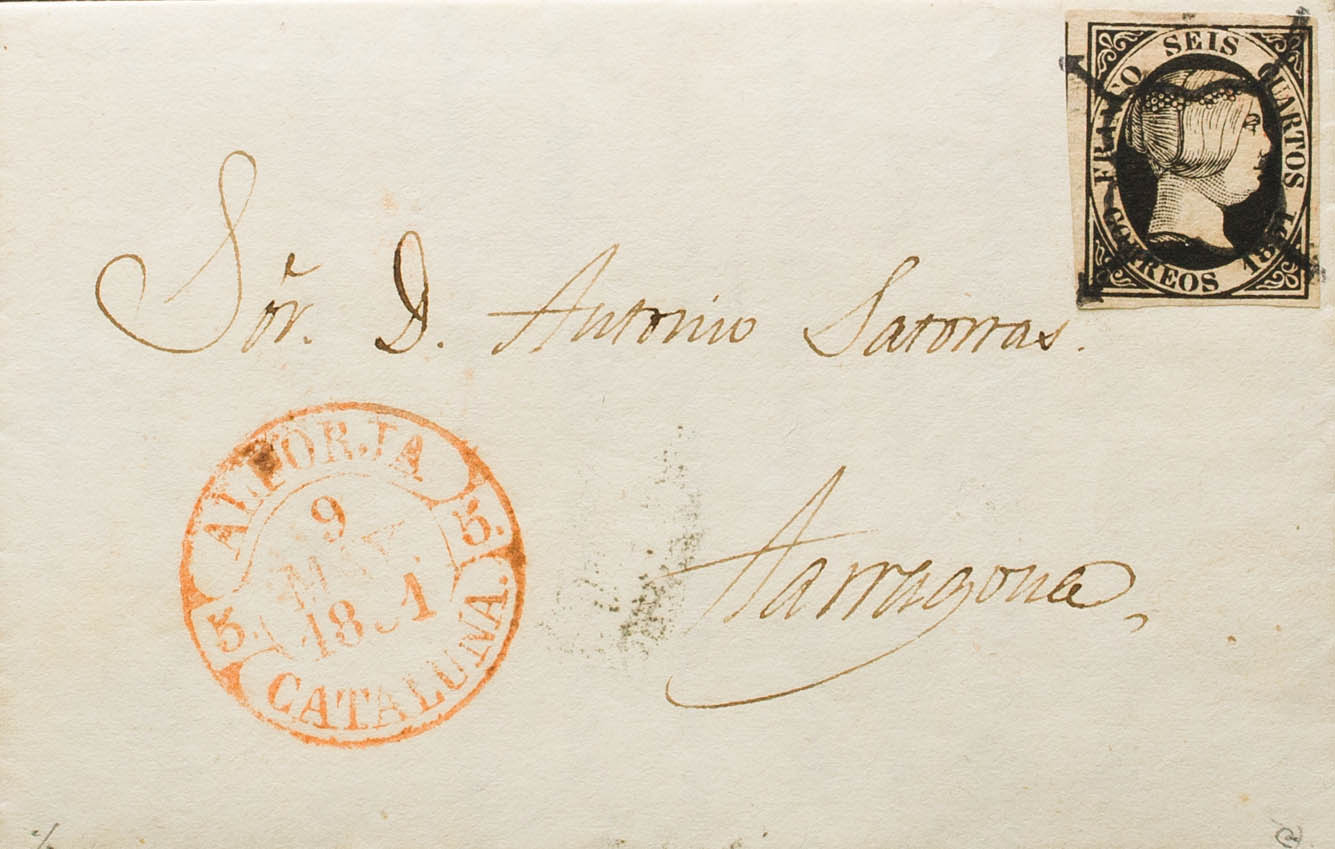 FRANCO SEIS CUARTOS
CORREOS 1851
Sōr. D. Antonio Satorras.
Tarragona,
ALFORJA
5
9
1851
5
CATALUÑA.